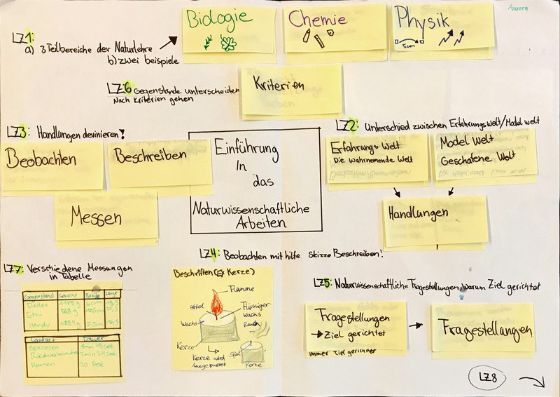 Biologie
Chemie
Physik
LZ1:
a) 3 Teilbereiche der Naturlehre
b) zwei beispiele
LZ6 Gegenstände unterscheiden
Nach Kriterien gehen
Kriterien
LZ3: Handlungen devinieren!
Beobachten
Beschreiben
Messen
Einführung
In
das
Naturwissenschaftliche
Arbeiten
LZ2: Unterschied zwischen Erfahrungswelt/Model welt
Erfahrungs Welt
Die wahrnemende Welt
Model Welt
Geschafene Welt
Handlungen
LZ7: Verschiedene Messungen
in Tabelle
LZ4: Beobachten mit hilfe skizze Beschreiben!
Beschriften (Kerze)
Flamme
Flüssiger
Wachs
Rauch
Wachs
Kerze
Kerze wird
LZ5: Naturwissenschaftliche Fragestellungen, warum Ziel gerichtet
Fragestellungen
→ Ziel gerichtet
immer Ziel gerichtet
Fragestellungen
LZ8